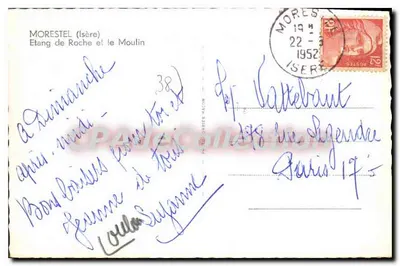 MORESTEL (Isère)
Etang de Roche et le Moulin
38)
A Dimanche
après-midi -
Bons baisers pour toi et
de tous
Suzanne
MORESTEL
19 H
22 -
1952
ISERE
Vattebaut
178 rue Legendre
Paris 17e